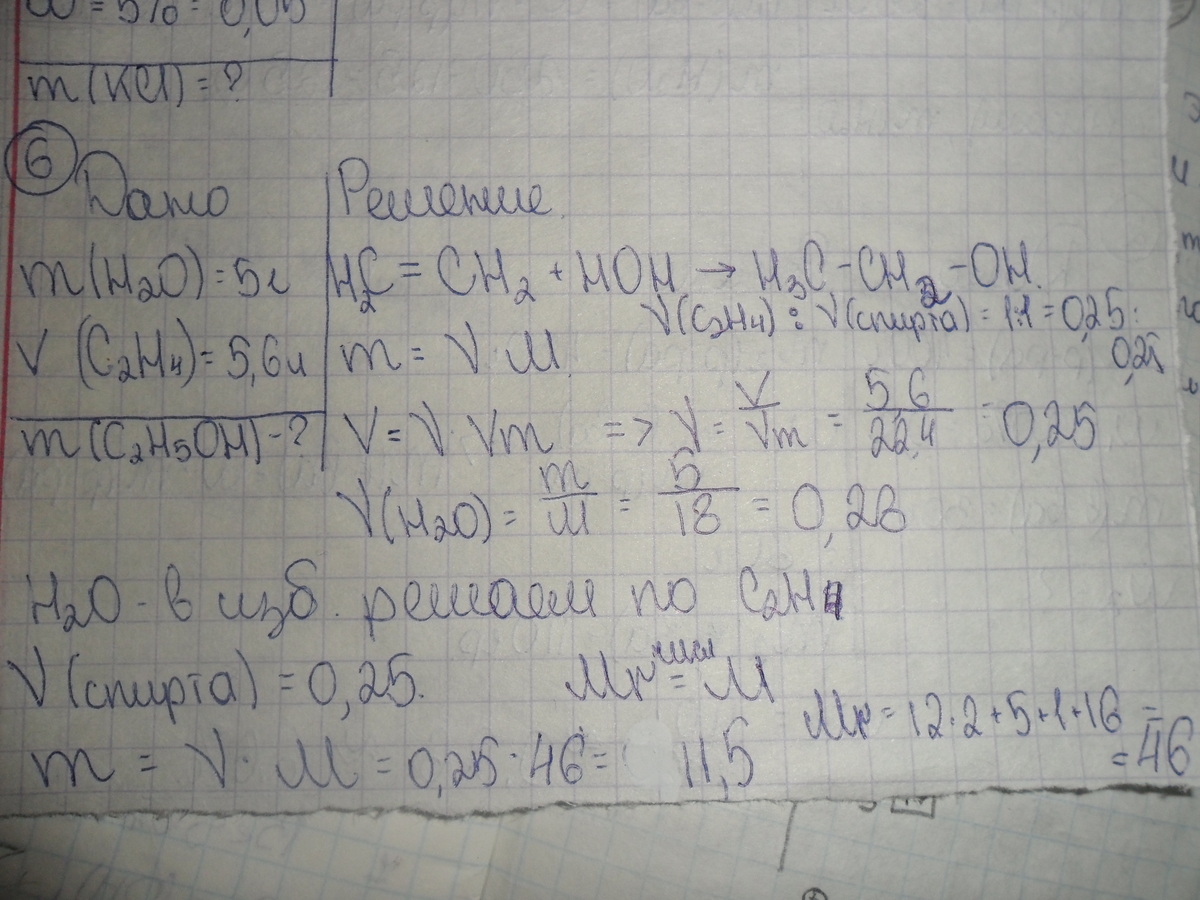 ω = 5% = 0,05
m(KCl) = ?
6
Дано
Решение.
m(H2O) = 5г
H2C = CH2 + HOH → H3C - CH2 - OH.
ν(C2H4) : ν(спирта) = 1:1 = 0,25 :
0,25
V (C2H4) = 5,6л
m = ν · M.
m(C2H5OH) - ?
V = ν · Vm => ν = V/Vm = 5,6/22,4 = 0,25
ν(H2O) = m/M = 5/18 = 0,28
H2O - в изб. решаем по C2H4
ν(спирта) = 0,25.
Mr числ = M
Mr = 12·2+5+1+16 =
= 46
m = ν · M = 0,25 · 46 = 11,5